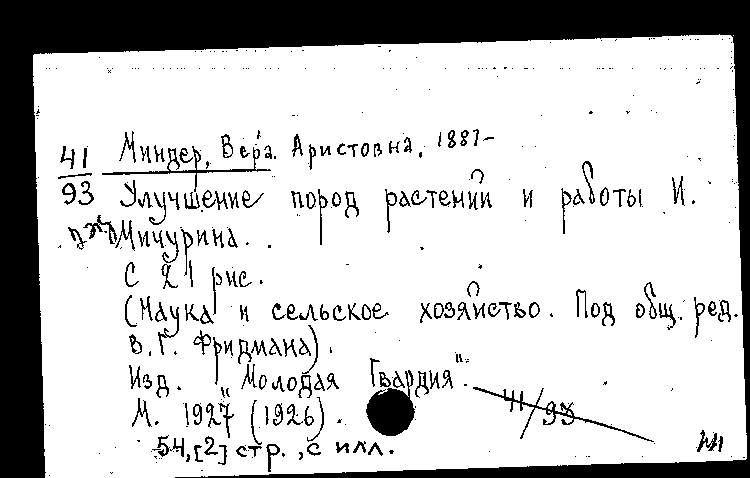 41 Миндер, Вера. Аристовна, 1887-
93 Улучшение пород растений и работы И.
Мичурина. .
С 21 рис.
(Наука и сельское хозяйство. Под общ. ред.
В. Г. Фридмана).
Изд. "Молодая Гвардия".
М. 1927 (1926). 41/93
54,[2] стр., с илл.